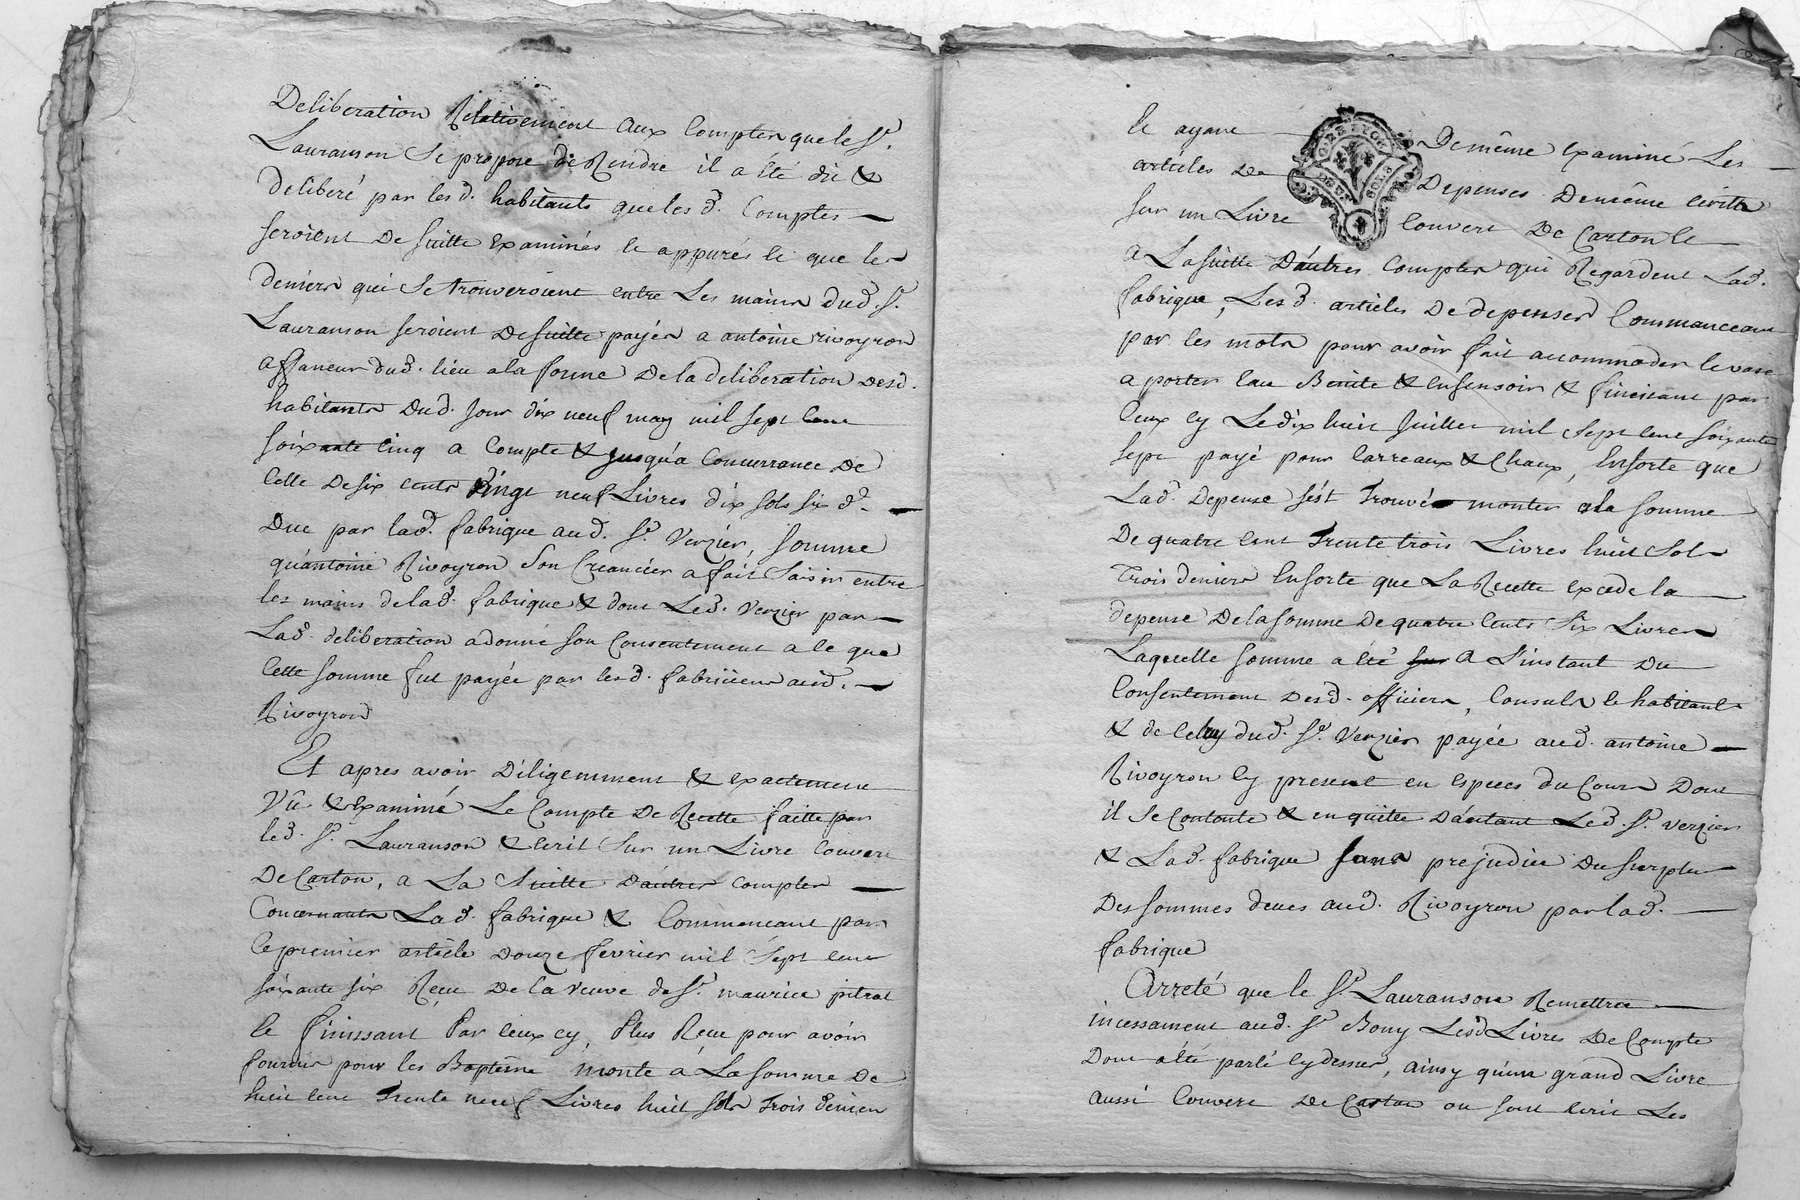 Deliberation Relativement aux Comptes que le Sr.
Lauranson Se propose de Rendre il a été dit &
deliberé par les d. habitants que les d. Comptes
seroient De suitte examinés et appurés et que les
deniers qui Se trouveroient entre Les mains dud. Sr.
Lauranson seroient De suitte payés a antoine rivoyron
affaneur dud. lieu a la forme De la deliberation Desd.
habitants Dud. jour dix neuf may mil sept cent
soixante cinq a Compte & jusqu'a Concurrance De
Celle De six cents vingt neuf Livres dix sols six d.
Due par lad. fabrique aud. Sr. Verzier, somme
qu'antoine Rivoyron Son Creancier a fait Saisir entre
les mains de lad. fabrique & dont Led. Verzier par
Lad. deliberation a donné son Consentement a ce que
Cette somme fut payée par lesd. fabriciens aud.
Rivoyron
Et apres avoir Diligemment & exactement
Vû & Examiné Le Compte De Recette faitte par
led. Sr. Lauranson & ecrit sur un Livre Couvert
De Carton, a La Suitte D'autres Comptes
Concernants Lad. fabrique & Commencant par
le premier article Douze fevrier mil Sept cent
soixante six Reçu De la veuve de Sr. maurice pitrat
et finissant Par ceux cy, Plus Reçu pour avoir
fourni pour les Baptême monte á La Somme De
huit cent Trente neuf Livres huit sols Trois deniers
Et ayant De même examiné Les
articles De Depenses De même ecritte
sur un Livre Couvert De Carton et
a La suitte D'autres Comptes qui Regardent Lad.
fabrique, Les d. articles De depenses Commanceant
par les mots pour avoir fait accommoder le vase
a porter l'au Benite & ensensoir & finissant par
Ceux cy Le dix huit Juillet mil sept cent soixante
sept payé pour Carreaux & Chaux, Ensorte que
Lad. Depense s'est Trouvée monter a la somme
De quatre cent Trente trois Livres huit Sols
Trois deniers Ensorte que La Recette excede la
depense De la somme De quatre Cents Six Livres
Laquelle somme a été a L'instant Du
Consentement Desd. officiers, Consuls et habitants
& de Celuy dud. Sr. Verzier payée aud. antoine
Rivoyron Cy present en especes du Cours Dont
il Se Contente & en quitte D'autant Led. Sr. Verzier
& Lad. fabrique sans prejudice Du Surplus
Des sommes deues aud. Rivoyron par lad.
fabrique
Arreté que le Sr. Lauranson Remettra
incessament aud. Sr. Bony Lesd. Livres De Compte
Dont a été parlé Cy dessus, ainsy qu'un grand Livre
aussi Couvert De Carton ou sont ecrit Les